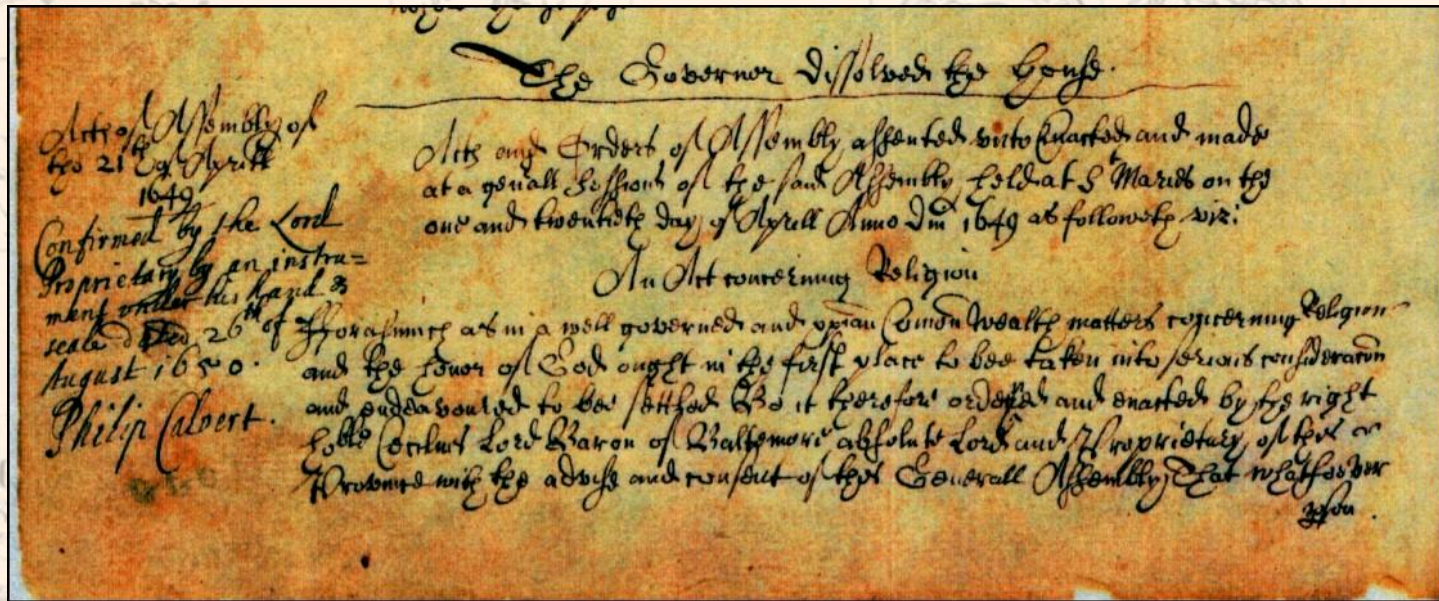 The Governor dissolved the House.
Acts of Assembly of
the 21th of Aprill
1649
Confirmed by the Lord
Proprietary by an instru=
ment under his hand &
seale 26th of
August 1650.
Philip Calvert.
Acts and Orders of Assembly assented vnto Enacted and made
at a genall Sessions of the said Assembly held at St Maries on the
one and twentieth day of Aprill Anno Dm 1649 as followeth viz:
An Act concerning Religion
fforasmuch as in a well governed and xpian Comon Wealth matters concerning Religion
and the honor of God ought in the first place to bee taken into serious consideracon
and endeavoured to bee settled Be it therefore ordered and enacted by the right
hoble Cecilius Lord Baron of Baltemore absolute Lord and Proprietary of this
Province with the advise and consent of this Generall Assembly That whatsoever
pson